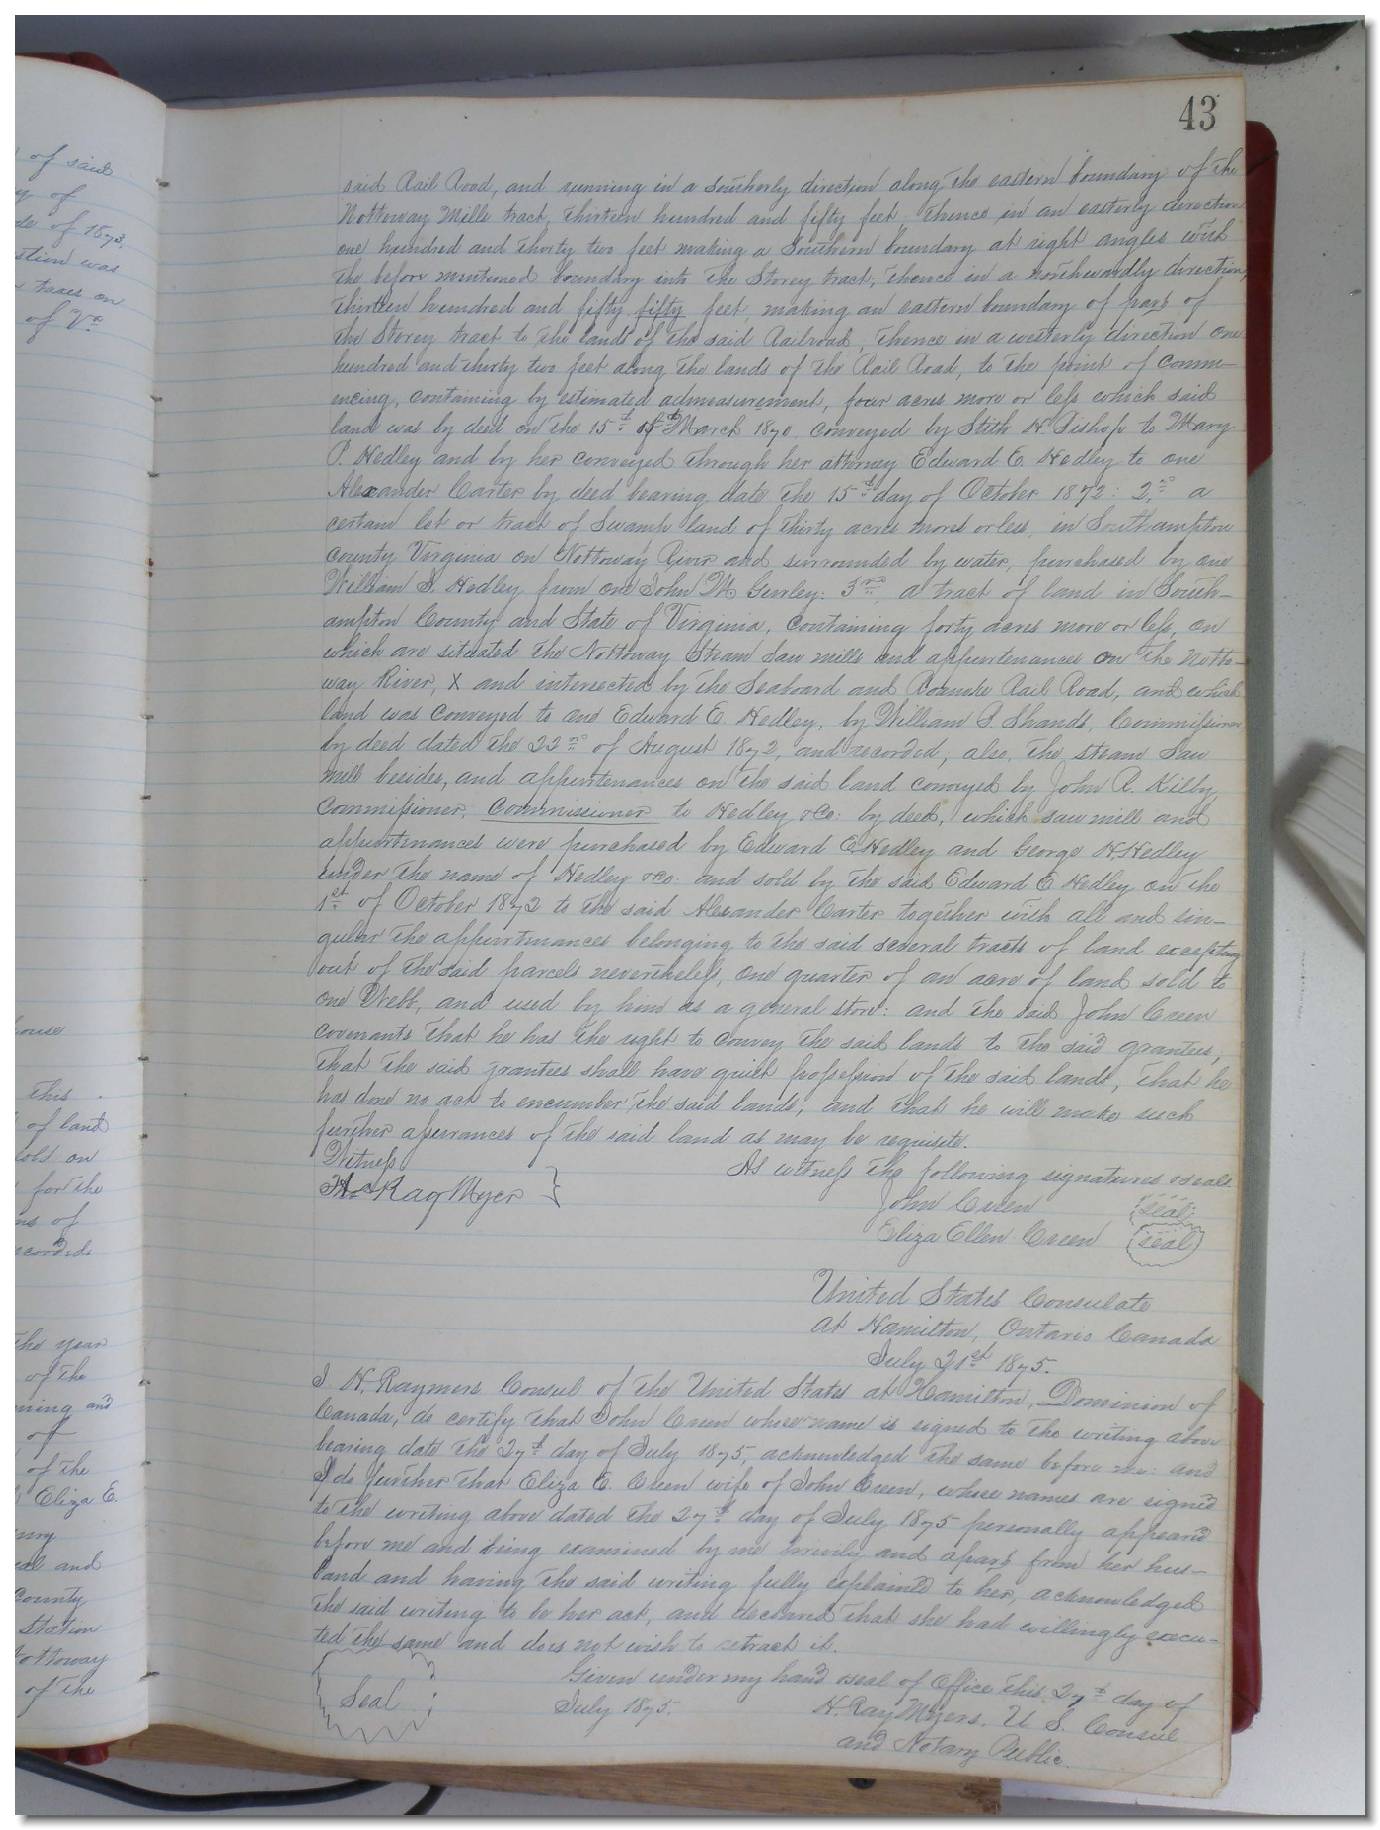 43
of said
of
of 1873.
stion was
taxes on
of Va
said Rail Road, and running in a southerly direction along the eastern boundary of the
Nottoway Mills tract, thirteen hundred and fifty feet, thence in an easterly direction
one hundred and thirty two feet making a southern boundary at right angles with
the before mentioned boundary into the Storey tract, thence in a northwardly direction,
thirteen hundred and fifty fifty feet, making an eastern boundary of part of
the Storey tract to the lands of the said Railroad, thence in a westerly direction one
hundred and thirty two feet along the lands of the Rail Road, to the point of comme-
ncing, containing by estimated admeasurement, four acres more or less which said
land was by deed on the 15th of March 1870 conveyed by Stith H Bishop to Mary
P. Hedley and by her conveyed through her attorney Edward E. Hedley to one
Alexander Carter by deed bearing date the 15th day of October 1872: 2nd a
certain lot or tract of Swamp land of thirty acres more or less, in Southampton
County Virginia on Nottoway River and surrounded by water, purchased by one
William S. Hedley from one John M Gurley: 3rd a tract of land in South-
ampton County and State of Virginia, containing forty acres more or less, on
which are situated the Nottoway Steam Saw mills and appurtenances on the Notto-
way River, X and intersected by the Seaboard and Roanoke Rail Road, and which
land was conveyed to one Edward E. Hedley, by William B. Shands, Commissioner
by deed dated the 22nd of August 1872, and recorded, also, the steam Saw
mill besides, and appurtenances on the said land conveyed by John R. Kilby
Commissioner, Commissioner to Hedley &Co: by deed, which saw mill and
appurtenances were purchased by Edward E. Hedley and George H. Hedley
under the name of Hedley &Co. and sold by the said Edward E Hedley on the
1st of October 1872 to the said Alexander Carter together with all and sin-
gular the appurtenances belonging to the said several tracts of land excepting
out of the said parcels nevertheless, one quarter of an acre of land sold to
one Webb, and used by him as a general store: and the said John Creen
covenants that he has the right to convey the said lands to the said grantees,
that the said grantees shall have quiet possession of the said lands, that he
has done no act to encumber the said lands, and that he will make such
further assurances of the said land as may be requisite.
Witness
As witness the following signatures & seals
Ray Myer
John Creen seal
Eliza Ellen Creen seal
United States Consulate
at Hamilton, Ontario Canada
July 21st 1875.
I H. Raymers Consul of the United States at Hamilton, Dominion of
Canada, do certify that John Creen whose name is signed to the writing above
bearing date the 27th day of July 1875, acknowledged the same before me: and
I do further that Eliza E. Creen wife of John Creen, whose names are signed
to the writing above dated the 27th day of July 1875 personally appeared
before me and being examined by me privily and apart from her hus-
band and having the said writing fully explained to her, acknowledged
the said writing to be her act, and declared that she had willingly execu-
ted the same and does not wish to retract it.
Given under my hand & seal of Office this 27th day of
July 1875.
Seal
H. Ray Myers. U S. Consul
and Notary Public.
house
this
of land
sold on
for the
of
recorded
the year
of the
and
of
of the
Eliza E.
and
County
Station
Nottoway
of the